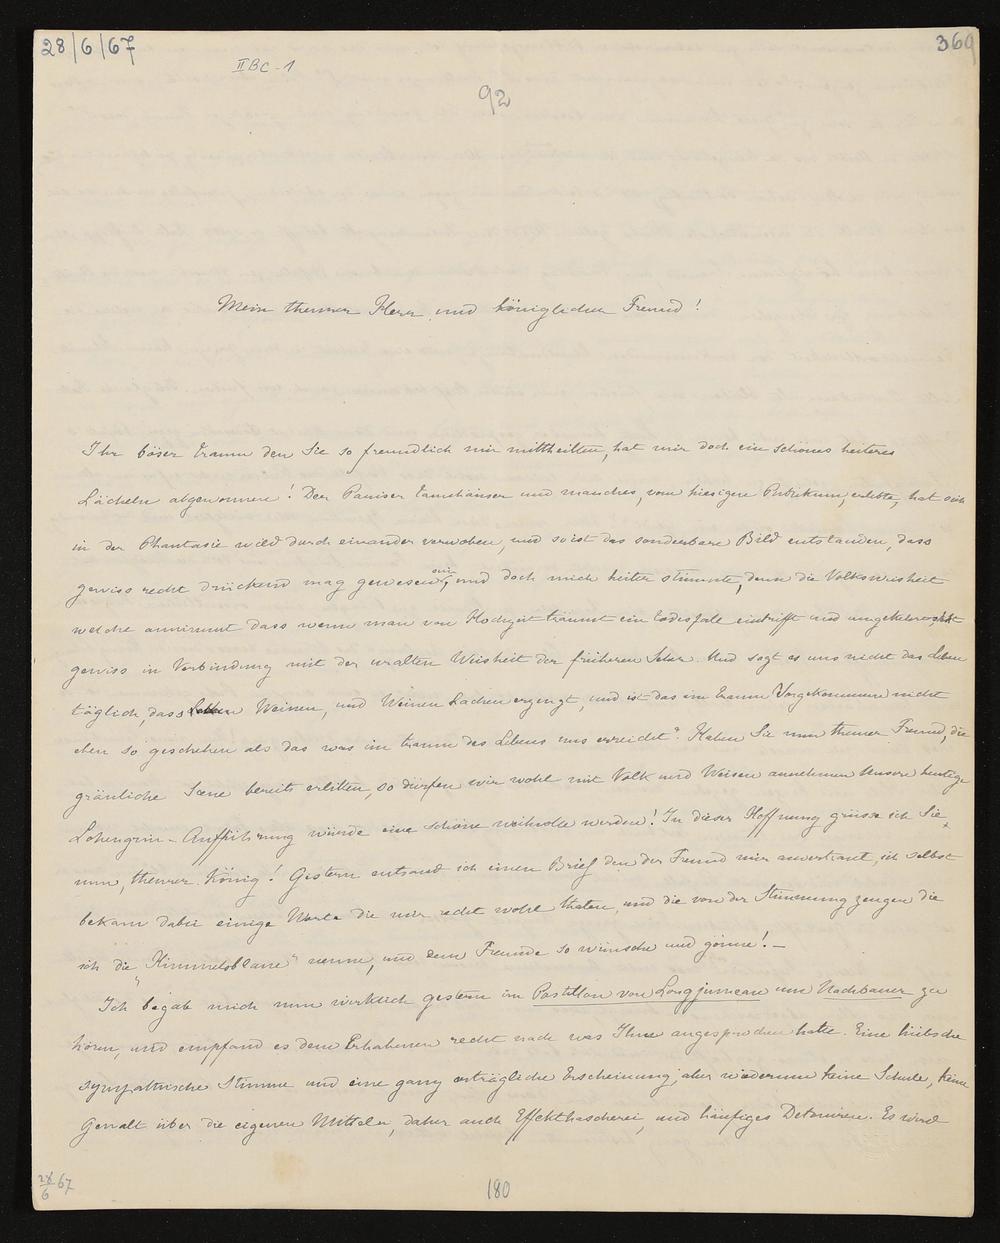 28/6/67
369
II BC - 1
92
Mein theurer Herr und königlicher Freund!
Ihr böser Traum den Sie so freundlich mir mittheilten, hat mir doch ein schönes heiteres
Lächeln abgewonnen! Der Pariser Tannhäuser und manches, vom hiesigen Publikum, erlebte, hat sich
in der Phantasie wild durch einander verwoben, und so ist das sonderbare Bild entstanden, dass
gewiss recht drückend mag gewesen sein, und doch mich heiter stimmte, denn die Volksweisheit
welche annimmt dass wenn man von Hochzeit träumt ein Todesfall eintrifft und umgekehrt, steht
gewiss in Verbindung mit der uralten Weisheit der früheren Seher. Und sagt es uns nicht das Leben
täglich dass Weinen, und Weinen Lachen erzeugt, und ist das im Traum Vorgekommene nicht
eben so geschehen als das was im traum des Lebens uns erreicht? Haben Sie nun theurer Freund, die
gräuliche Scene bereits erlitten, so dürfen wir wohl mit Volk und Weisen annehmen unsere heutige
Lohengrin-Aufführung würde eine schöne weihvolle werden! In dieser Hoffnung grüsse ich Sie
nun, theurer König! Gestern entsand ich einen Brief den der Freund mir anvertraut, ich selbst
bekam dabei einige Worte die mir recht wohl thaten, und die von der Stimmung zeugen die
ich die "Himmelsblaue" nenne, und dem Freunde so wünsche und gönne! —
Ich begab mich nun wirklich gestern im Postillon von Longjumeau um Nachbauer zu
hören, und empfand es dem Erhabenen recht nach was Ihn angesprochen hatte. Eine hübsche
sympathische Stimme und eine ganz erträgliche Erscheinung; aber wiederum keine Schule, keine
Gewalt über die eigenen Mitteln, daher auch Effekthascherei, und häufiges Detoniren. Es wird
28/6 67
180